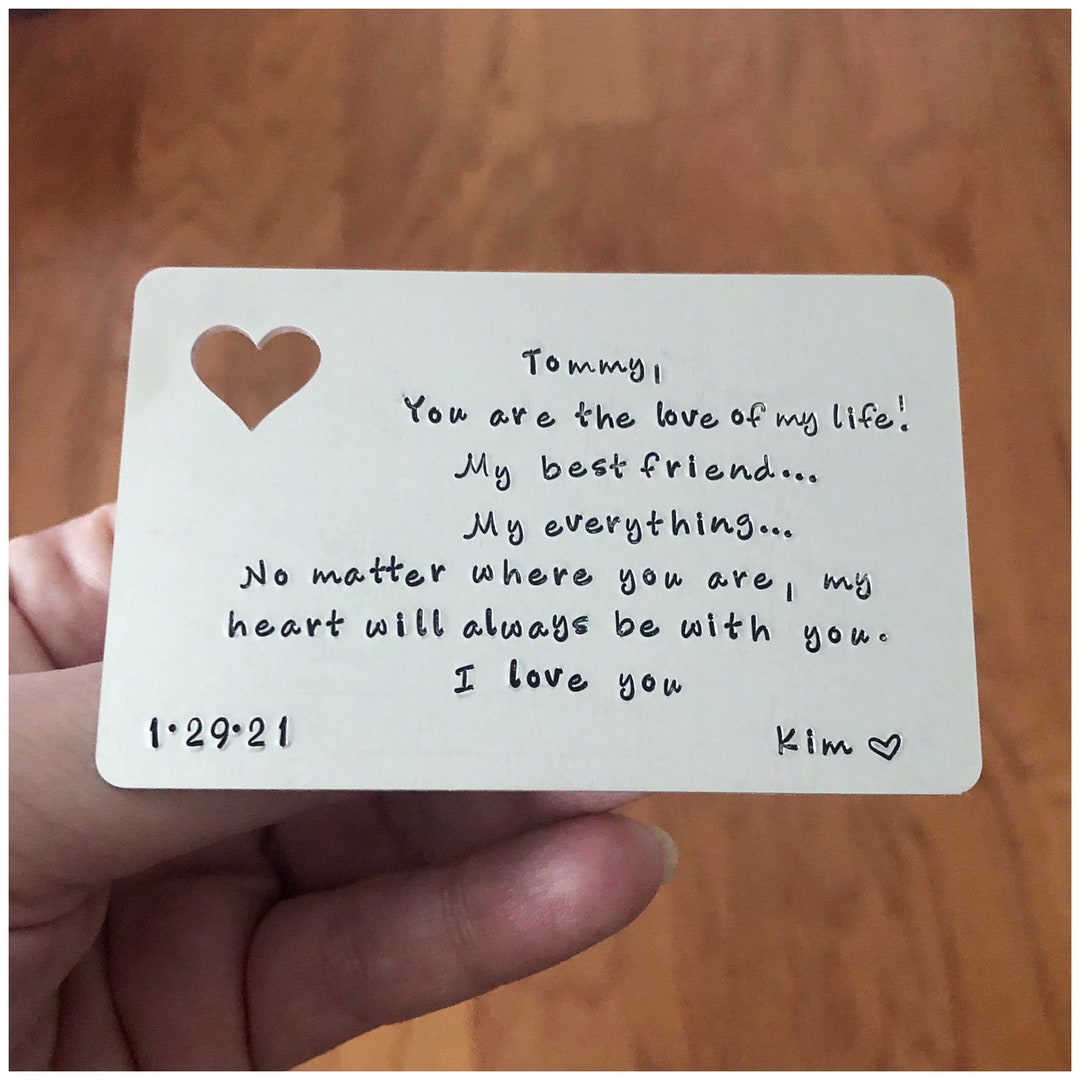 Tommy,
You are the love of my life!
My best friend...
My everything...
No matter where you are, my
heart will always be with you.
I love you
1•29•21 Kim ♡